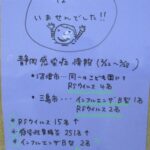 いませんでした!!
静岡感染症情報
・沼津市…
RSウイルス 4名
・三島市…インフルエンザB型 1名
RSウイルス 2名
・RSウイルス 15名
・感染性胃腸炎 251名
・インフルエンザB型 2名